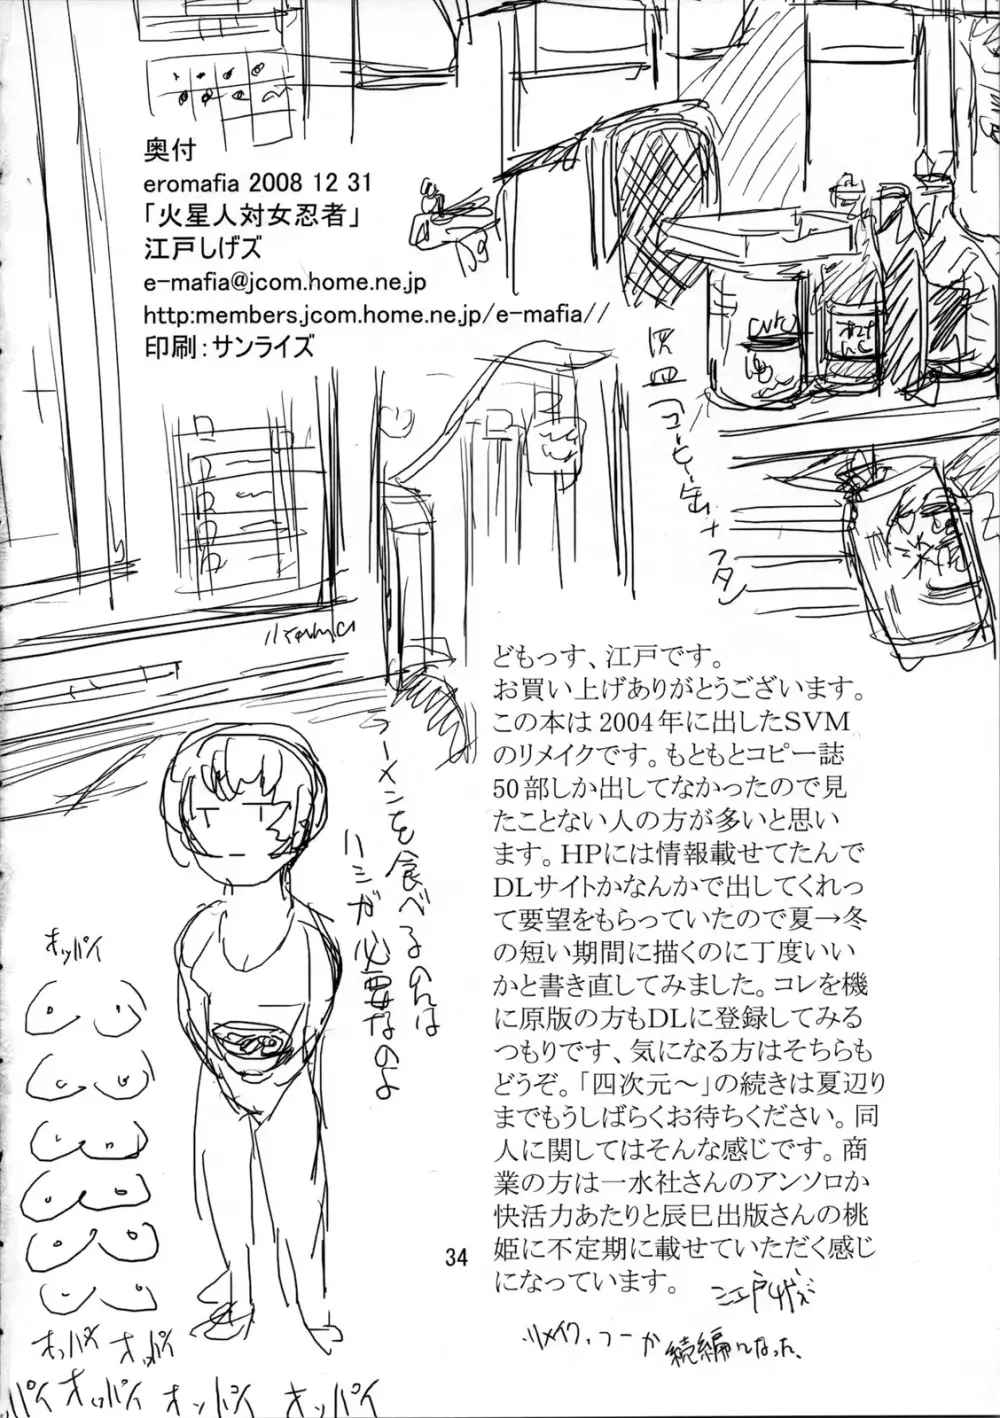 奥付
eromafia 2008 12 31
「火星人対女忍者」
江戸しげズ
e-mafia@jcom.home.ne.jp
http:members.jcom.home.ne.jp/e-mafia//
印刷：サンライズ
灰皿コーヒー缶＋フタ
どもっす、江戸です。
お買い上げありがとうございます。
この本は2004年に出したSVM
のリメイクです。もともとコピー誌
50部しか出してなかったので見
たことない人の方が多いと思い
ます。HPには情報載せてたんで
DLサイトかなんかで出してくれっ
て要望をもらっていたので夏→冬
の短い期間に描くのに丁度いい
かと書き直してみました。コレを機
に原版の方もDLに登録してみる
つもりです、気になる方はそちらも
どうぞ。「四次元～」の続きは夏辺り
までもうしばらくお待ちください。同
人に関してはそんな感じです。商
業の方は一水社さんのアンソロか
快活力あたりと辰巳出版さんの桃
姫に不定期に載せていただく感じ
になっています。
江戸しげズ
リメイク、つーか続編になった、
ラーメンを食べるのには
ハシが必要なのよ
オッパイ
オッパイ オッパイ
パイ オッパイ オッパイ オッパイ
34